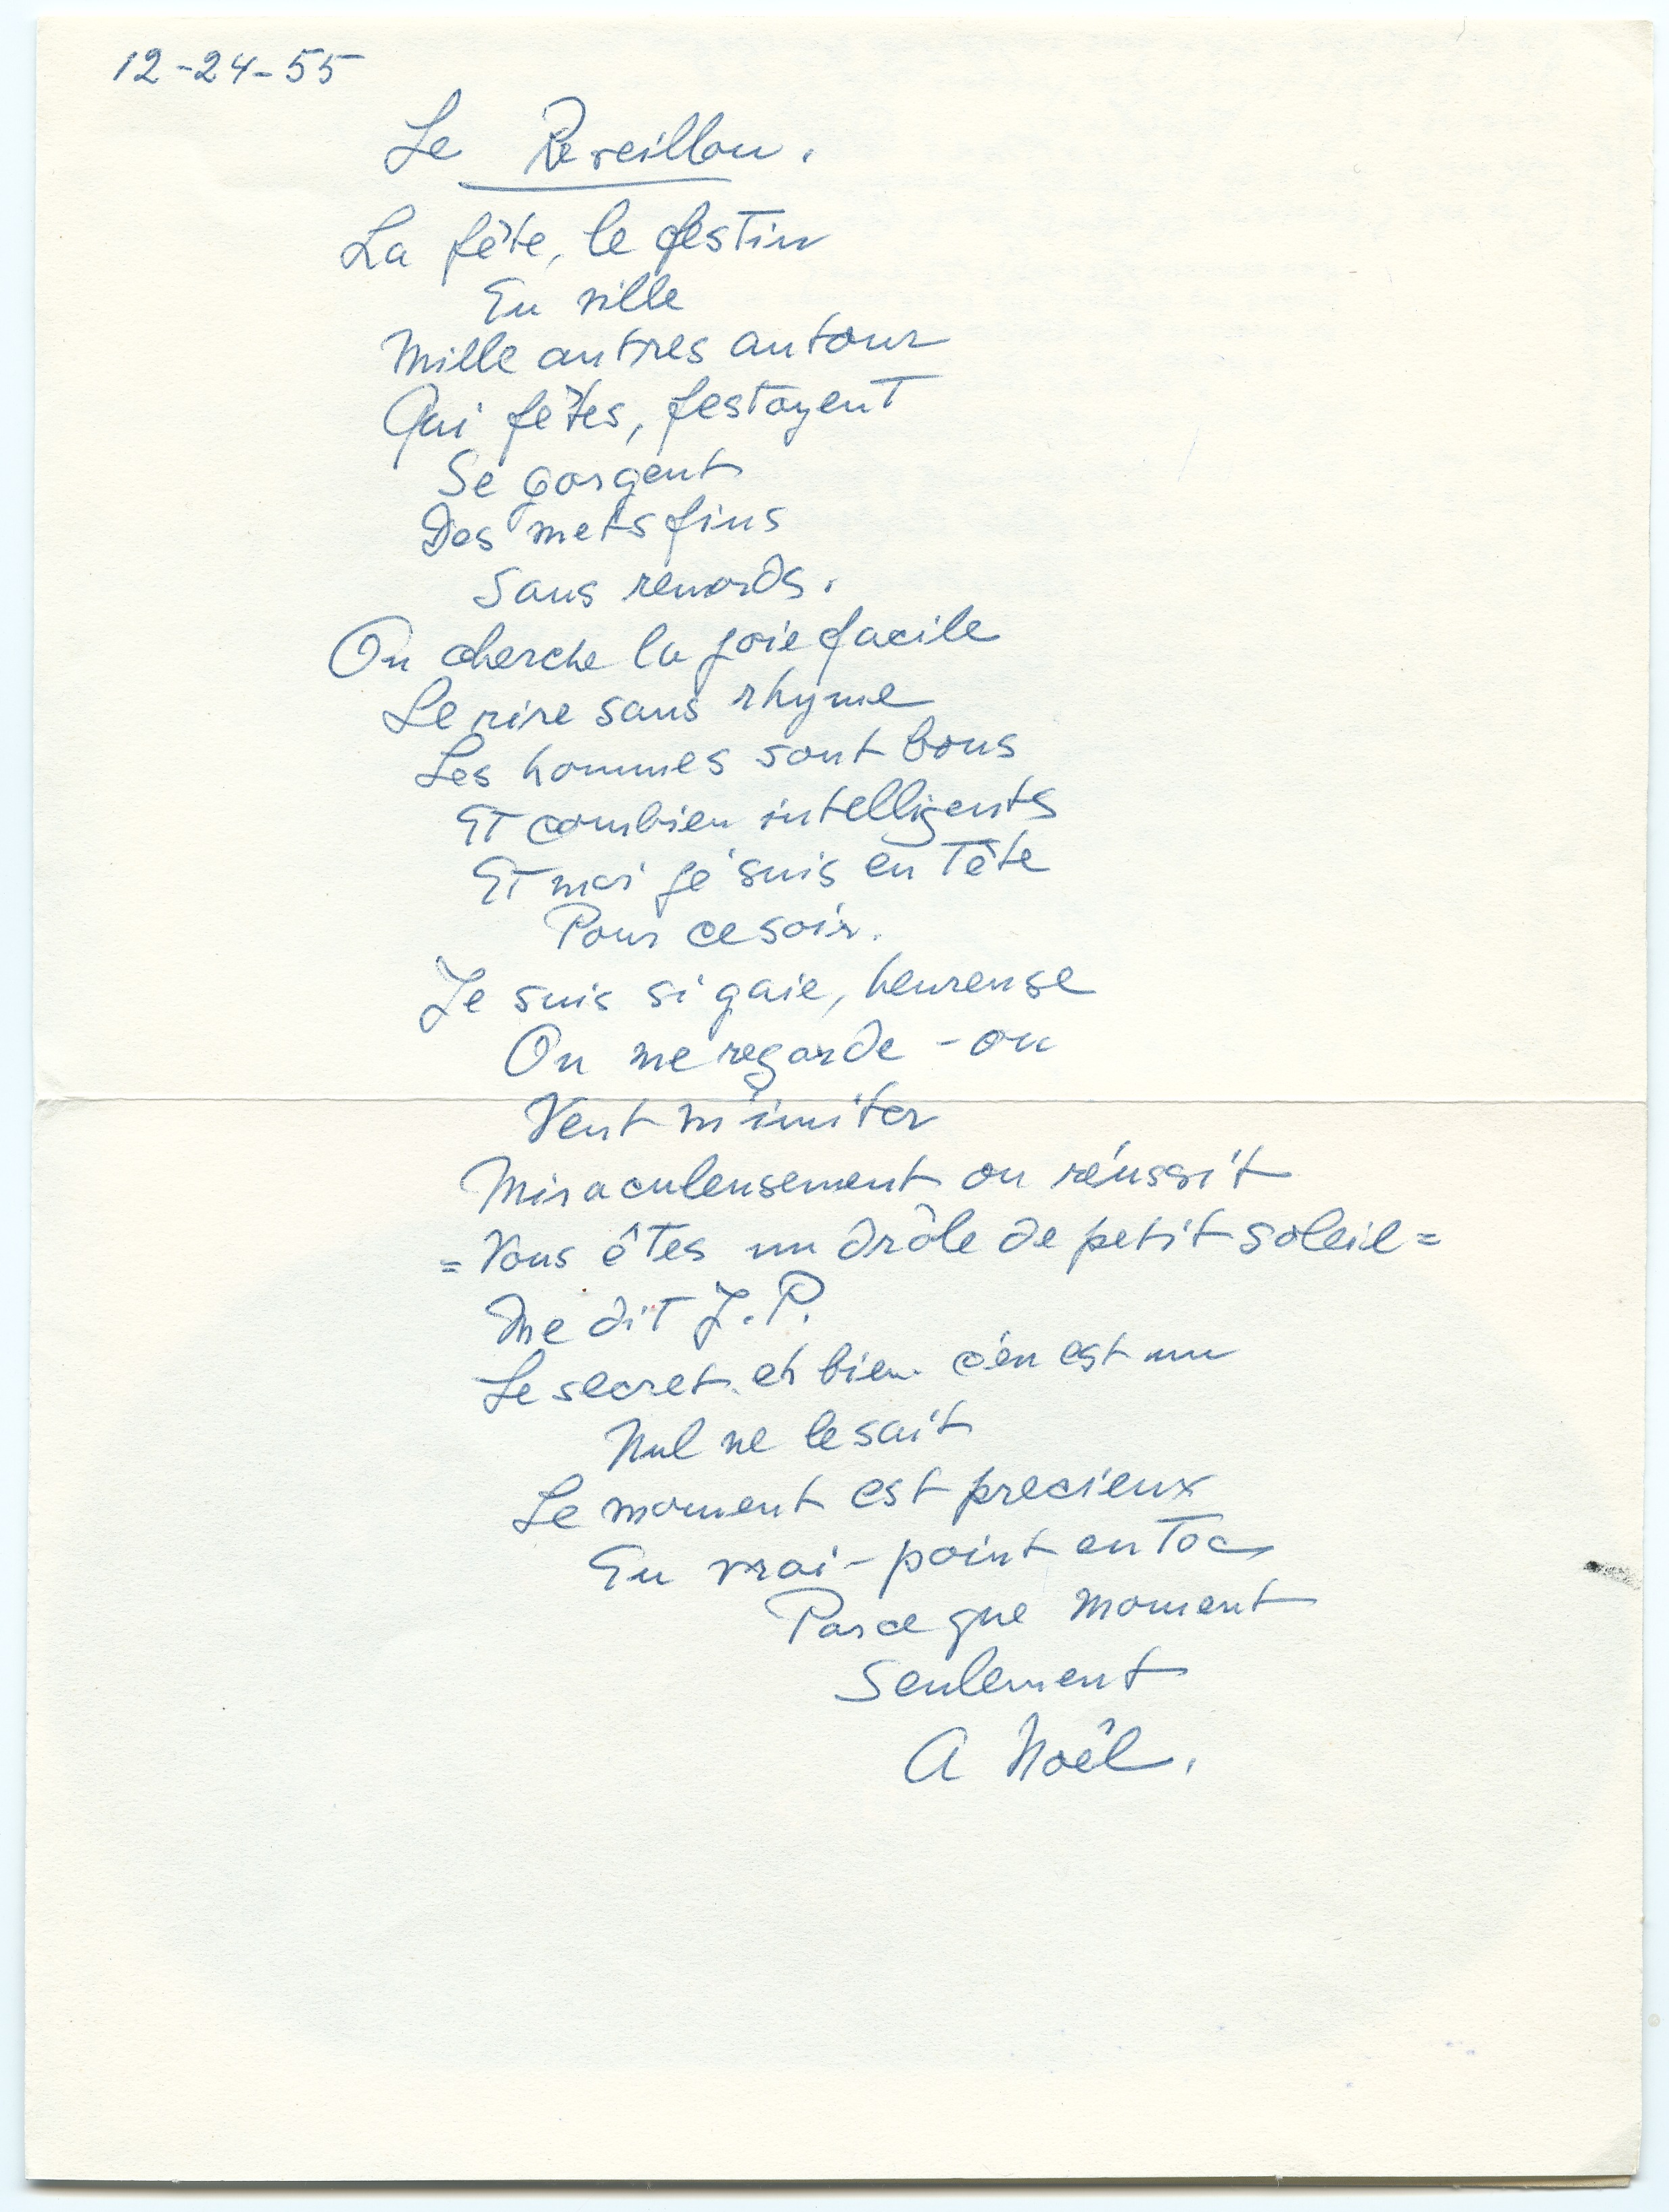 12-24-55
Le Reveillon.
La fête, le festin
En ville
Mille autres autour
Qui fêtes, festoyent
Se gorgent
Des mets fins
Sans remords.
On cherche la joie facile
Le rire sans rhyme
Les hommes sont bons
Et combien intelligents
Et moi je suis en tête
Pour ce soir.
Je suis si gaie, heureuse
On me regarde - on
Veut m'imiter
Miraculeusement on réussit
= Vous êtes un drôle de petit soleil =
Me dit J.P.
Le secret eh bien c'en est un
Nul ne le sait
Le moment est precieux
En vrai - point en toc
Parce que moment
Seulement
A Noël.